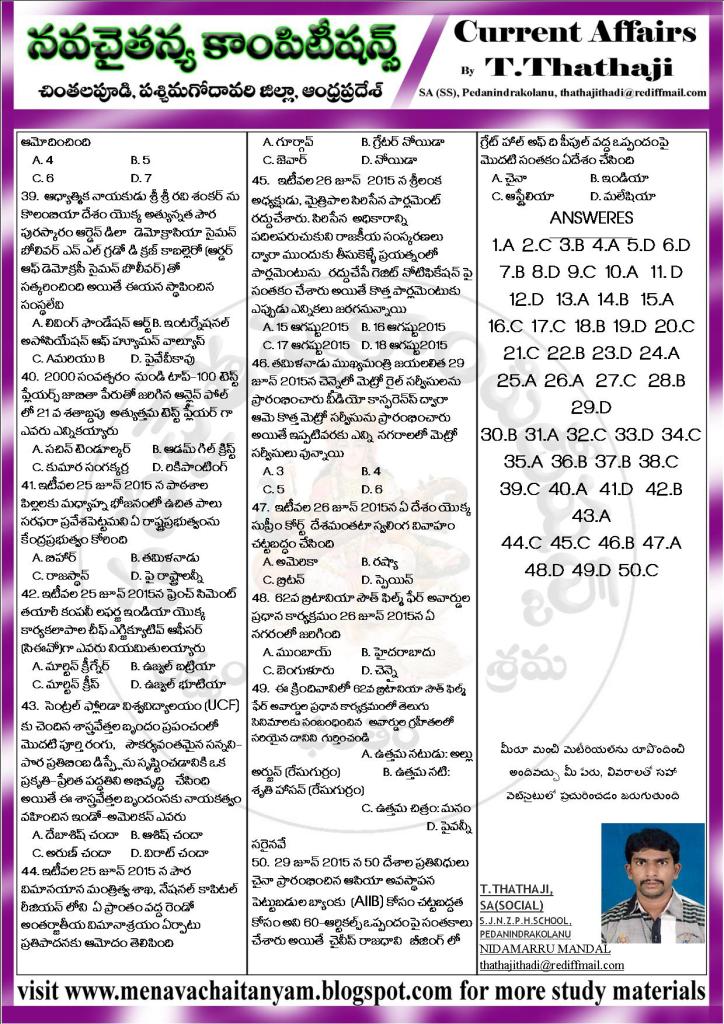 నవచైతన్య కాంపిటీషన్స్
చింతలపూడి, పశ్చిమగోదావరి జిల్లా, ఆంధ్రప్రదేశ్
Current Affairs
By T.Thathaji
SA (SS), Pedanindrakolanu, thathajithadi@rediffmail.com
ఆమోదించింది
A. 4 B. 5
C. 6 D. 7
39. ఆధ్యాత్మిక నాయకుడు శ్రీ శ్రీ రవి శంకర్ ను
కొలంబియా దేశం యొక్క అత్యున్నత పౌర
పురస్కారం ఆర్డెన్ డిలా డెమోక్రాసియా సైమన్
బోలివర్ ఎన్ ఎల్ గ్రడో డి క్రజ్ కాబల్లెరో (ఆర్డర్
ఆఫ్ డెమోక్రసీ సైమన్ బోలీవర్) తో
సత్కరించింది అయితే ఈయన స్థాపించిన
సంస్థలేవి
A. లివింగ్ ఫౌండేషన్ ఆర్ట్ B. ఇంటర్నేషనల్
అసోసియేషన్ ఆఫ్ హ్యూమన్ వాల్యూస్
C. Aమరియు B D. పైవేవీకావు
40. 2000 సంవత్సరం నుండి టాప్-100 టెస్ట్
ప్లేయర్స్ జాబితా పేరుతో జరిగిన ఆన్లైన్ పోల్
లో 21 వ శతాబ్దపు అత్యుత్తమ టెస్ట్ ప్లేయర్ గా
ఎవరు ఎన్నికయ్యారు
A. సచిన్ టెండూల్కర్ B. ఆడమ్ గిల్ క్రిస్ట్
C. కుమార సంగక్కర్ర D. రికిపాంటింగ్
41. ఇటీవల 25 జూన్ 2015 న పాఠశాల
పిల్లలకు మధ్యాహ్న భోజనంలో ఉచిత పాలు
సరఫరా ప్రవేశపెట్టమని ఏ రాష్ట్రప్రభుత్వంను
కేంద్రప్రభుత్వం కోరింది
A. బిహార్ B. తమిళనాడు
C. రాజస్థాన్ D. పై రాష్ట్రాలన్నీ
42. ఇటీవల 25 జూన్ 2015 న ఫ్రెంచ్ సిమెంట్
తయారీ కంపనీ లఫర్జ ఇండియా యొక్క
కార్యకలాపాల చీఫ్ ఎగ్జిక్యూటివ్ ఆఫీసర్
(సిఈవో)గా ఎవరు నియమితులయ్యారు
A. మార్టిన్ క్రీగ్నేర్ B. ఉజ్వల్ బట్రియా
C. మార్టిన్ క్రీస్ D. ఉజ్వల్ భూటియా
43. సెంట్రల్ ఫ్లోరిడా విశ్వవిద్యాలయం (UCF)
కు చెందిన శాస్త్రవేత్తల బృందం ప్రపంచంలో
మొదటి పూర్తి రంగు, సౌకర్యవంతమైన సన్నని-
పొర ప్రతిబింబ డిస్ప్లేను సృష్టించడానికి ఒక
ప్రకృతి-ప్రేరిత పద్ధతిని అభివృద్ధి చేసింది
అయితే ఈ శాస్త్రవేత్తల బృందంనకు నాయకత్వం
వహించిన ఇండో-అమెరికన్ ఎవరు
A. దేబాశిష్ చందా B. ఆశిష్ చందా
C. అరుణ్ చందా D. విరాట్ చందా
44. ఇటీవల 25 జూన్ 2015 న పౌర
విమానయాన మంత్రిత్వ శాఖ, నేషనల్ కాపిటల్
రీజియన్ లోని ఏ ప్రాంతం వద్ద రెండో
అంతర్జాతీయ విమానాశ్రయం ఏర్పాటు
ప్రతిపాదనకు ఆమోదం తెలిపింది
A. గూర్గావ్ B. గ్రేటర్ నోయిడా
C. జెవార్ D. నోయిడా
45. ఇటీవల 26 జూన్ 2015 న శ్రీలంక
అధ్యక్షుడు, మైత్రిపాల సిరిసేన పార్లమెంట్
రద్దుచేశారు. సిరిసేన అధికారాన్ని
పదిలపరుచుకుని రాజకీయ సంస్కరణలు
ద్వారా ముందుకు తీసుకెళ్ళే ప్రయత్నంలో
పార్లమెంటును రద్దుచేసే గెజిట్ నోటిఫికేషన్ పై
సంతకం చేశారు అయితే కొత్త పార్లమెంటుకు
ఎప్పుడు ఎన్నికలు జరగనున్నాయి
A. 15 ఆగష్టు2015 B. 16 ఆగష్టు2015
C. 17 ఆగష్టు2015 D. 18 ఆగష్టు2015
46. తమిళనాడు ముఖ్యమంత్రి జయలలిత 29
జూన్ 2015న చెన్నైలో మెట్రో రైల్ సర్వీసులను
ప్రారంభించారు వీడియో కాన్ఫరెన్స్ ద్వారా
ఆమె కొత్త మెట్రో సర్వీసును ప్రారంభించారు
అయితే ఇప్పటివరకు ఎన్ని నగరాలలో మెట్రో
సర్వీసులు వున్నాయి
A. 3 B. 4
C. 5 D. 6
47. ఇటీవల 26 జూన్ 2015న ఏ దేశం యొక్క
సుప్రీం కోర్ట్ దేశమంతటా స్వలింగ వివాహం
చట్టబద్ధం చేసింది
A. అమెరికా B. రష్యా
C. బ్రిటన్ D. స్పెయిన్
48. 62వ బ్రిటానియా సౌత్ ఫిల్మ్ ఫేర్ అవార్డుల
ప్రధాన కార్యక్రమం 26 జూన్ 2015న ఏ
నగరంలో జరిగింది
A. ముంబాయ్ B. హైదరాబాదు
C. బెంగుళూరు D. చెన్నై
49. ఈ క్రిందివానిలో 62వ బ్రిటానియా సౌత్ ఫిల్మ్
ఫేర్ అవార్డుల ప్రధాన కార్యక్రమంలో తెలుగు
సినిమాలకు సంబంధించిన అవార్డుల గ్రహీతలలో
సరియైన దానిని గుర్తించండి
A. ఉత్తమ నటుడు: అల్లు
అర్జున్ (రేసుగుర్రం) B. ఉత్తమ నటి:
శృతి హాసన్ (రేసుగుర్రం)
C. ఉత్తమ చిత్రం: మనం
D. పైవన్నీ
సరైనవే
50. 29 జూన్ 2015 న 50 దేశాల ప్రతినిధులు
చైనా ప్రారంభించిన ఆసియా అవస్థాపన
పెట్టుబడుల బ్యాంకు (AIIB) కోసం చట్టబద్దత
కోసం అని 60-ఆర్టికల్స్ ఒప్పందంపై సంతకాలు
చేశారు అయితే చైనీస్ రాజధాని బీజింగ్ లో
గ్రేట్ హాల్ అఫ్ ది పీపుల్ వద్ద ఒప్పందంపై
మొదటి సంతకం ఏదేశం చేసింది
A. చైనా B. ఇండియా
C. ఆస్ట్రేలియా D. మలేషియా
ANSWERES
1.A 2.C 3.B 4.A 5.D 6.D
7.B 8.D 9.C 10.A 11. D
12.D 13.A 14.B 15.A
16.C 17.C 18.B 19.D 20.C
21.C 22.B 23.D 24.A
25.A 26.A 27.C 28.B
29.D
30.B 31.A 32.C 33.D 34.C
35.A 36.B 37.B 38.C
39.C 40.A 41.D 42.B
43.A
44.C 45.C 46.B 47.A
48.D 49.D 50.C
మీరూ మంచి మెటీరియల్‌ను రూపొందించి
అందివ్వచ్చు మీ పేరు, వివరాలతో సహా
వెబ్‌సైటులో ప్రచురించడం జరుగుతుంది
T.THATHAJI,
SA(SOCIAL)
S.J.N.Z.P.H.SCHOOL,
PEDANINDRAKOLANU
NIDAMARRU MANDAL
thathajithadi@rediffmail.com
visit www.menavachaitanyam.blogspot.com for more study materials